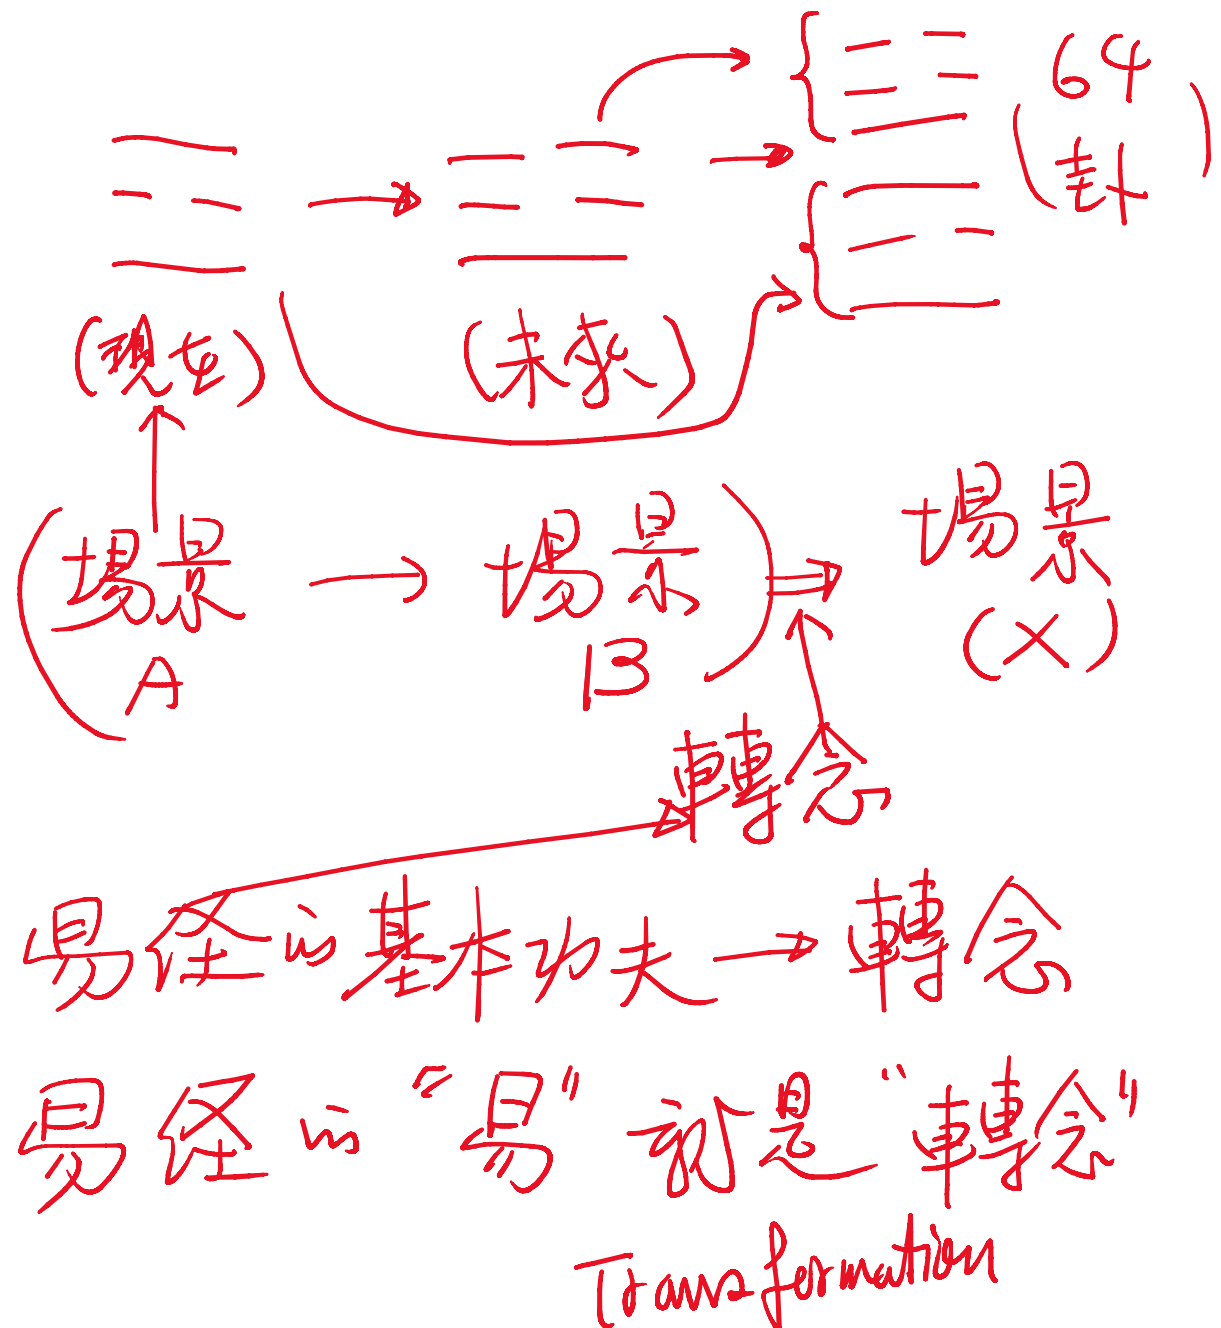 64
(卦)
(現在)
(未來)
(場景 A → 場景 B) ⇒ 場景 (X)
轉念
易经的基本功夫 → 轉念
易经的“易”就是“轉念”
Transformation